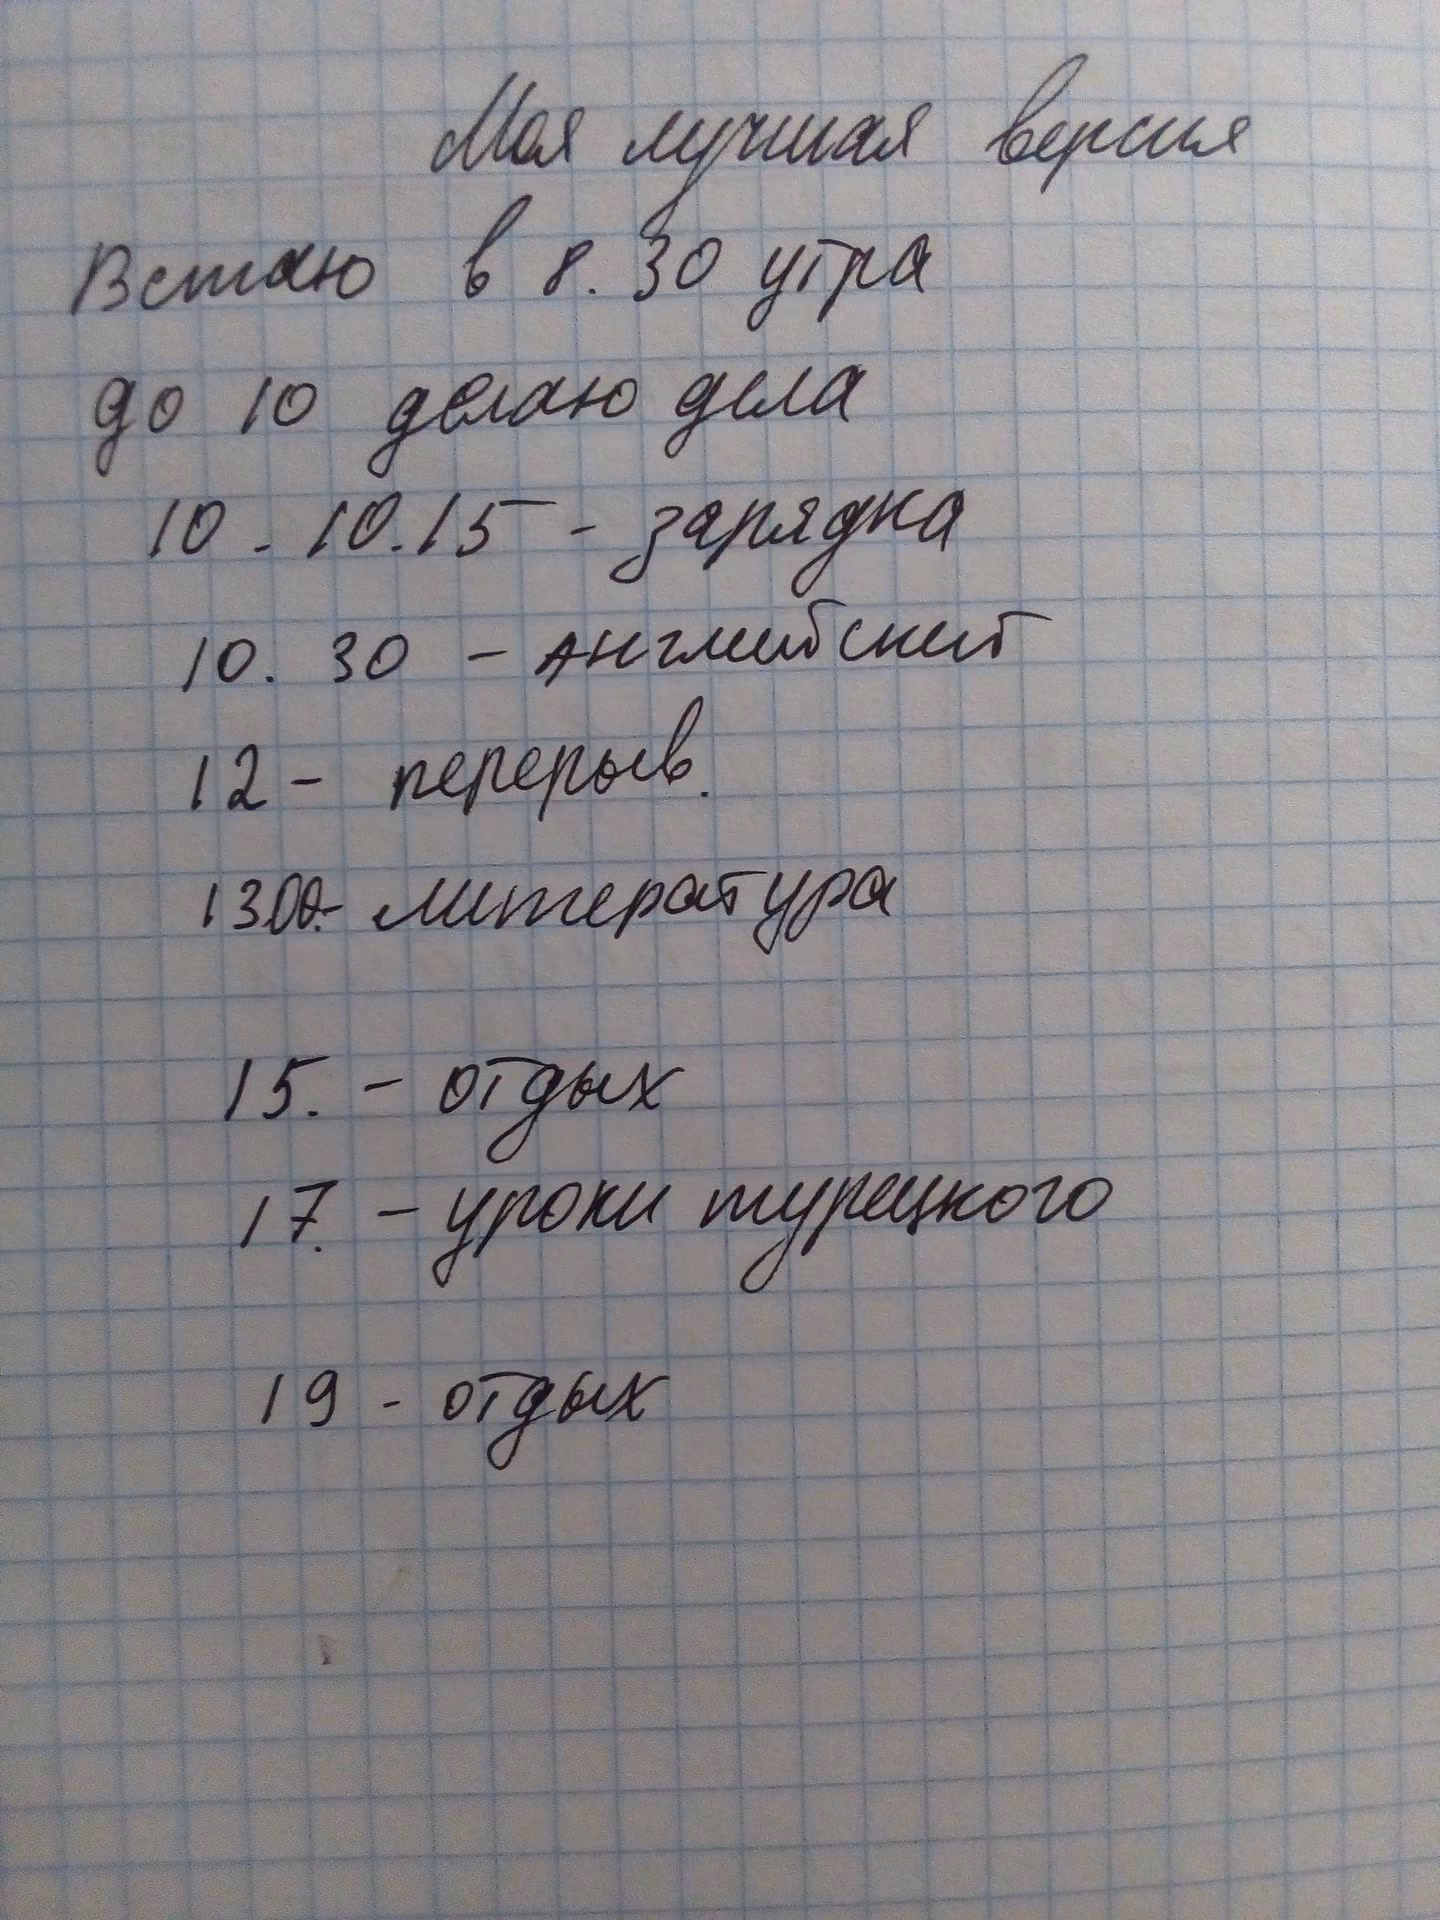 Моя лучшая версия
Встаю в 8.30 утра
до 10 делаю дела
10 - 10.15 - зарядка
10.30 - английский
12 - перерыв.
1300.- литература
15. - отдых
17. - уроки турецкого
19 - отдых